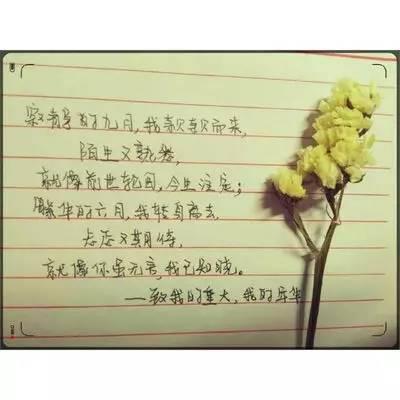 寂静的九月,我款款而来,
陌生又熟悉,
就像前世轮回,今生注定;
华的六月,我转身离去,
忐忑又期待,
就像你虽无言,我已知晓。
—致我的重大,我的年华